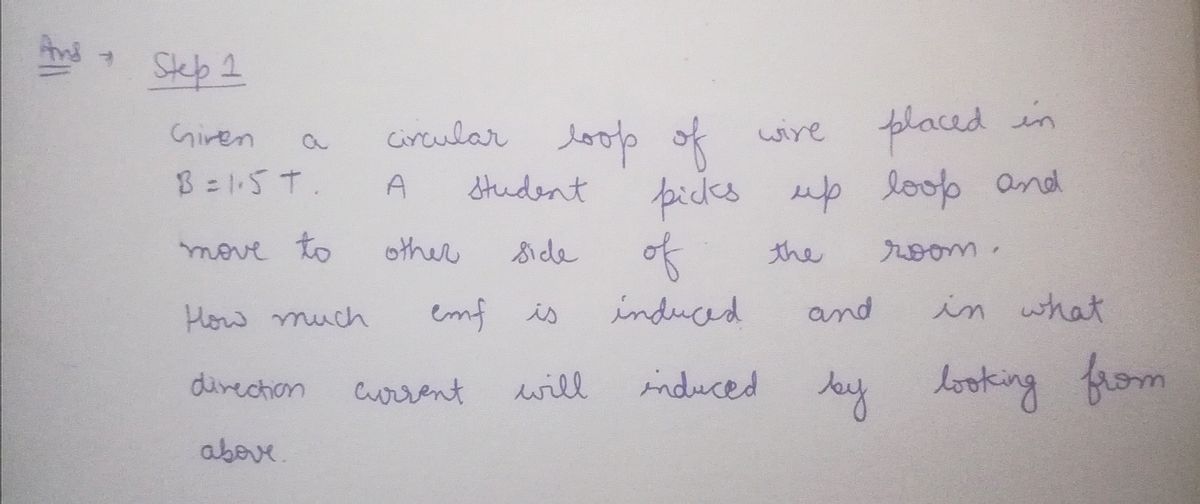 Ans → Step 1
Given a circular loop of wire placed in
B = 1.5 T. A student picks up loop and
move to other side of the room.
How much emf is induced and in what
direction current will induced by looking from
above.